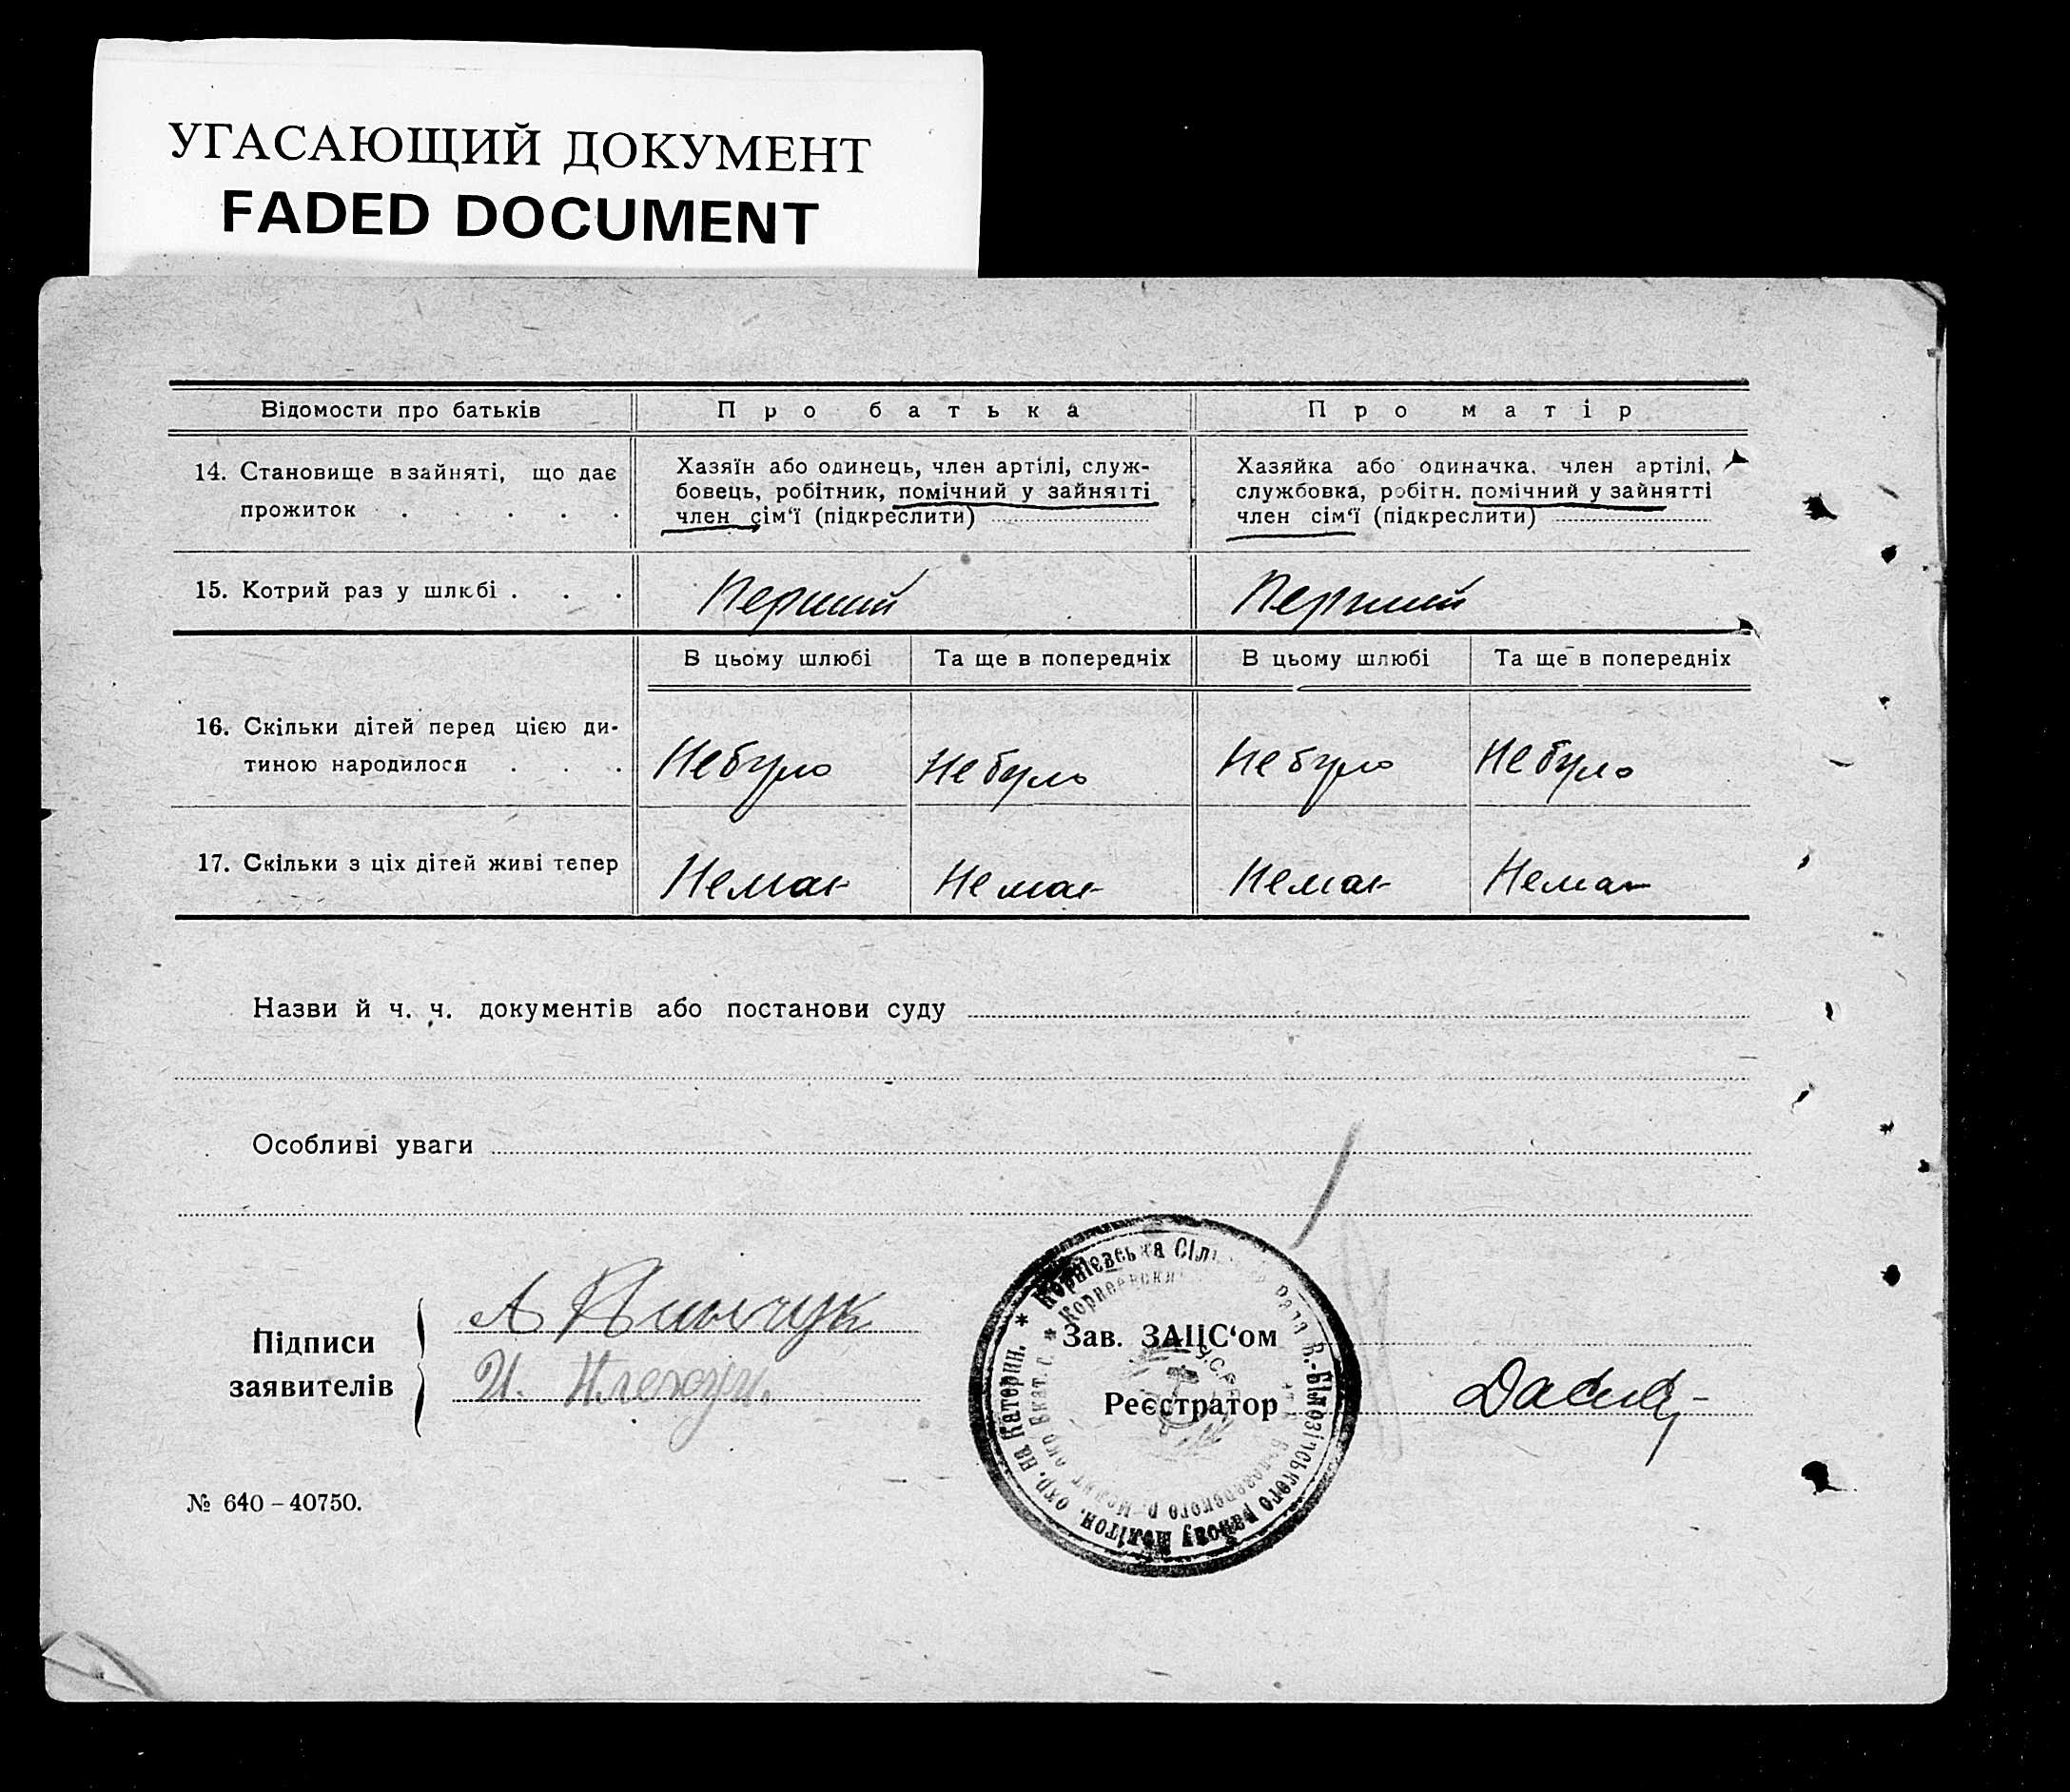 УГАСАЮЩИЙ ДОКУМЕНТ
FADED DOCUMENT
Відомости про батьків
Про батька
Про матір
14. Становище в зайняті, що дає
прожиток . . . . .
Хазяїн або одинець, член артілі, служ-
бовець, робітник, помічний у зайнятті
член сім‘ї (підкреслити)
Хазяйка або одиначка, член артілі,
службовка, робітн. помічний у зайнятті
член сім‘ї (підкреслити)
15. Котрий раз у шлюбі . . .
Перший
Перший
В цьому шлюбі
Та ще в попередніх
В цьому шлюбі
Та ще в попередніх
16. Скільки дітей перед цією ди-
тиною народилося . . .
Небуло
Небуло
Небуло
Небуло
17. Скільки з ціх дітей живі тепер
Немає
Немає
Немає
Немає
Назви й ч. ч. документів або постанови суду
Особливі уваги
Підписи
заявителів
А
И.
Корнієвська Сіл рада В.-Білозірського району Мелітоп. окр. на Катерин.
Зав. ЗАЦС‘ом
Реєстратор
№ 640 – 40750.